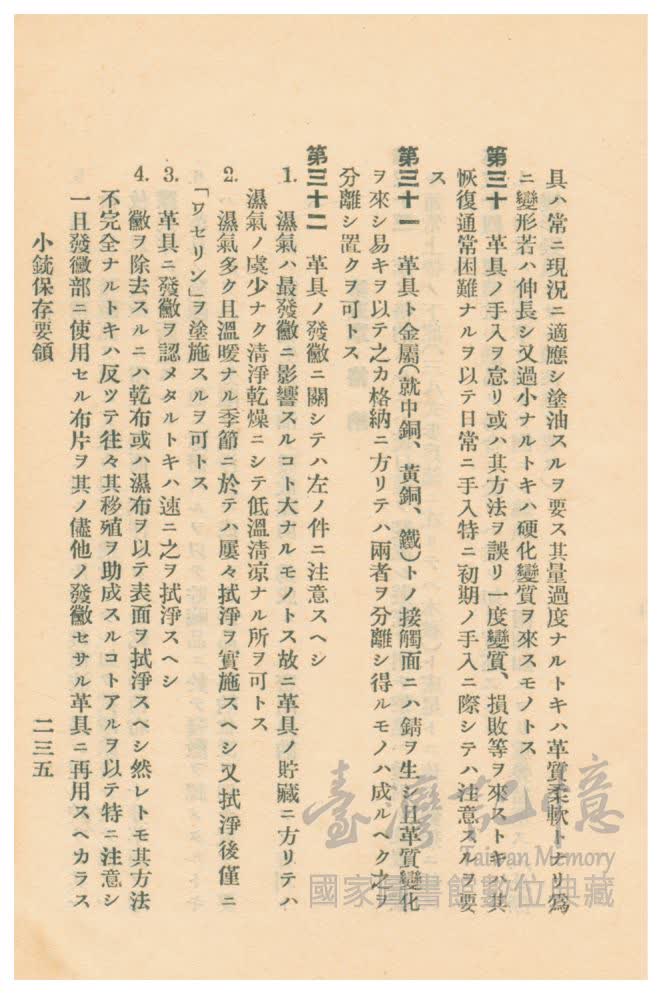 具ハ常ニ現況ニ適應シ塗油スルヲ要ス其量過度ナルトキハ革質柔軟トナリ爲
ニ變形若ハ伸長シ又過小ナルトキハ硬化變質ヲ來スモノトス
第三十 革具ノ手入ヲ怠リ或ハ其方法ヲ誤リ一度變質、損敗等ヲ來ストキハ其
恢復通常困難ナルヲ以テ日常ニ手入特ニ初期ノ手入ニ際シテハ注意スルヲ要
ス
第三十一 革具ト金屬(就中銅、黃銅、鐵)トノ接觸面ニハ錆ヲ生シ且革質變化
ヲ來シ易キヲ以テ之カ格納ニ方リテハ兩者ヲ分離シ得ルモノハ成ルヘク之ヲ
分離シ置クヲ可トス
第三十二 革具ノ發黴ニ關シテハ左ノ件ニ注意スヘシ
1. 濕氣ハ最發黴ニ影響スルコト大ナルモノトス故ニ革具ノ貯藏ニ方リテハ
濕氣ノ虞少ナク清淨乾燥ニシテ低溫清凉ナル所ヲ可トス
2. 濕氣多ク且溫暖ナル季節ニ於テハ屢々拭淨ヲ實施スヘシ又拭淨後僅ニ
「ワセリン」ヲ塗施スルヲ可トス
3. 革具ニ發黴ヲ認メタルトキハ速ニ之ヲ拭淨スヘシ
4. 黴ヲ除去スルニハ乾布或ハ濕布ヲ以テ表面ヲ拭淨スヘシ然レトモ其方法
不完全ナルトキハ反ツテ往々其移殖ヲ助成スルコトアルヲ以テ特ニ注意シ
一旦發黴部ニ使用セル布片ヲ其ノ儘他ノ發黴セサル革具ニ再用スヘカラス
小銃保存要領
二三五
臺灣記憶
Taiwan Memory
國家圖書館數位典藏